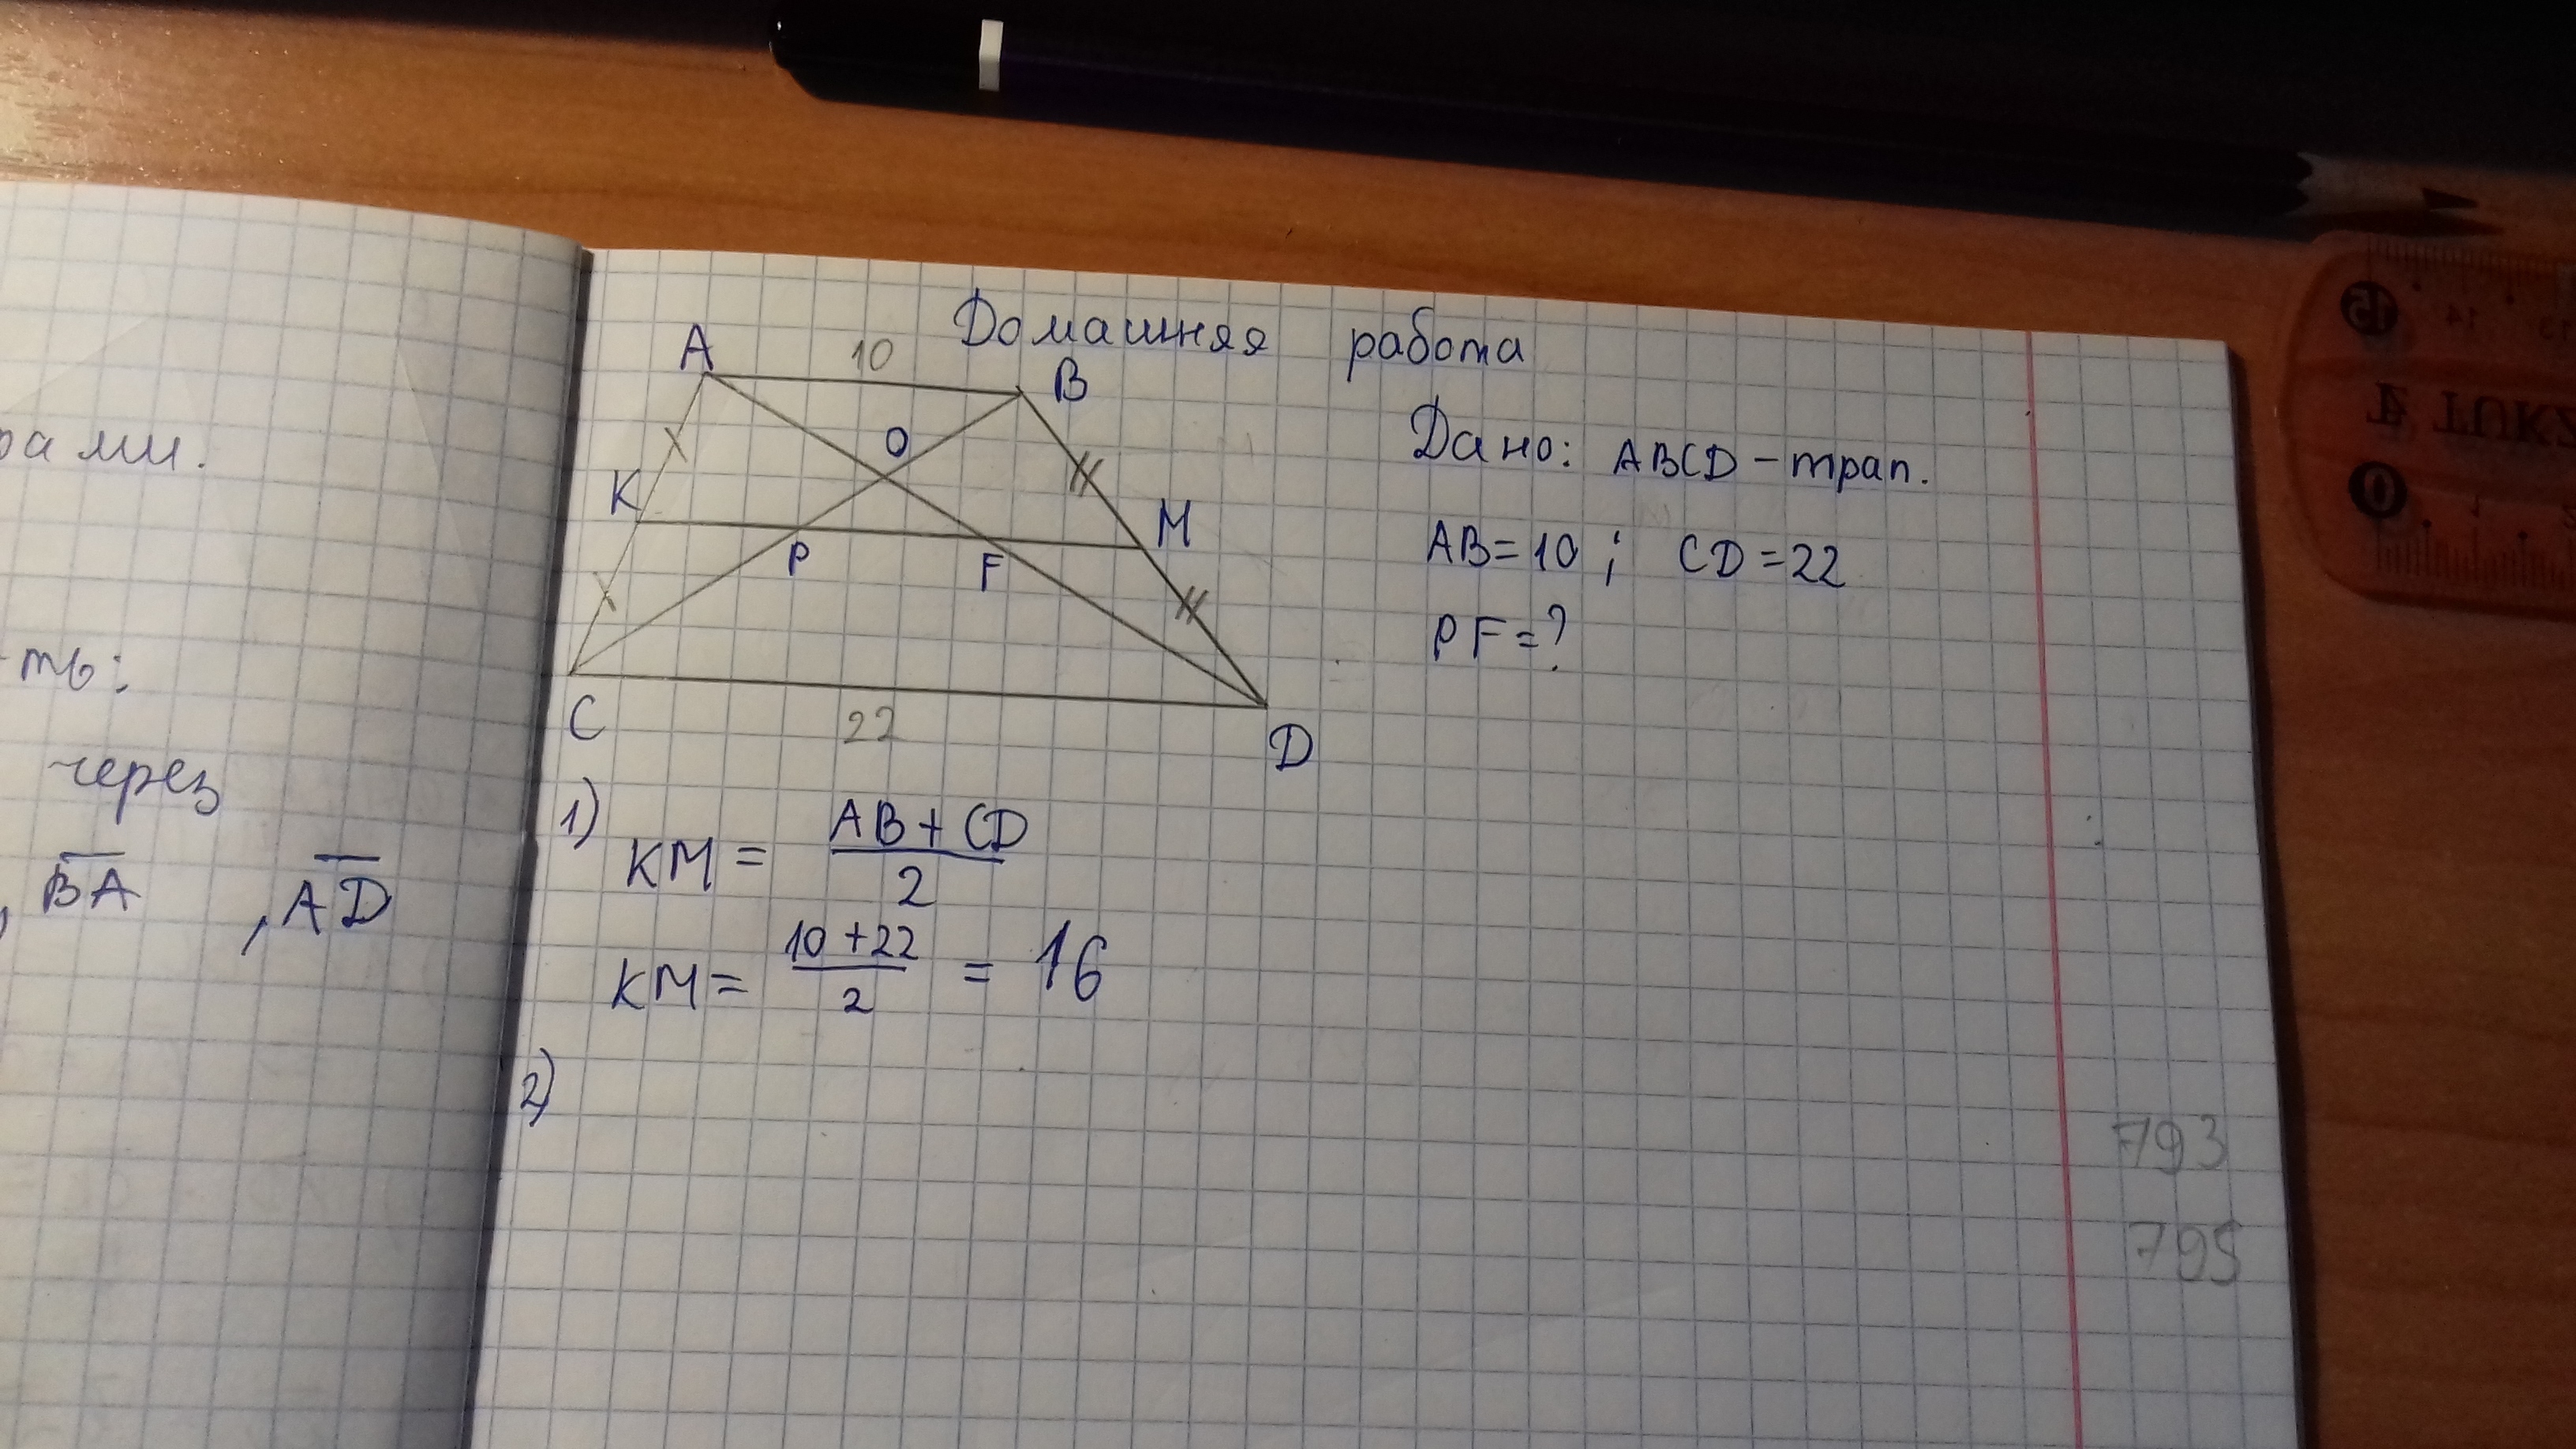 рами.
ть:
через
, BA , AD
Домашняя работа
A 10 B
O
K M
P F
C 22 D
Дано: ABCD - трап.
AB = 10 ; CD = 22
PF = ?
1) KM = AB + CD / 2
KM = 10 + 22 / 2 = 16
2)
793
795
15 14
TUKZ
0 1